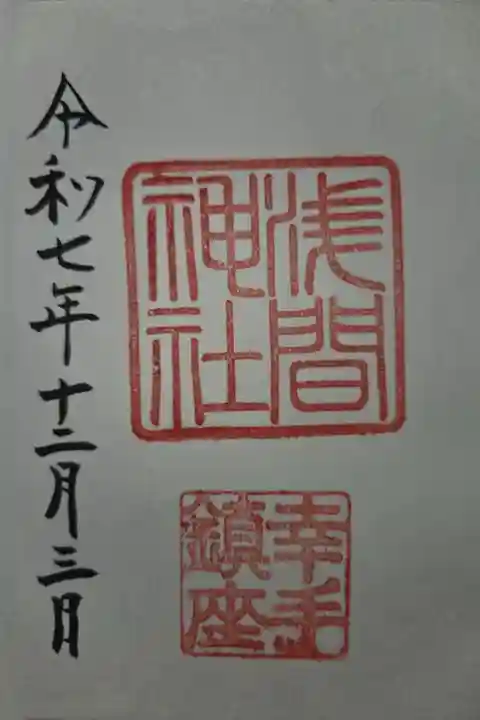 浅間
神社
幸手
鎮座
令和七年十二月三日